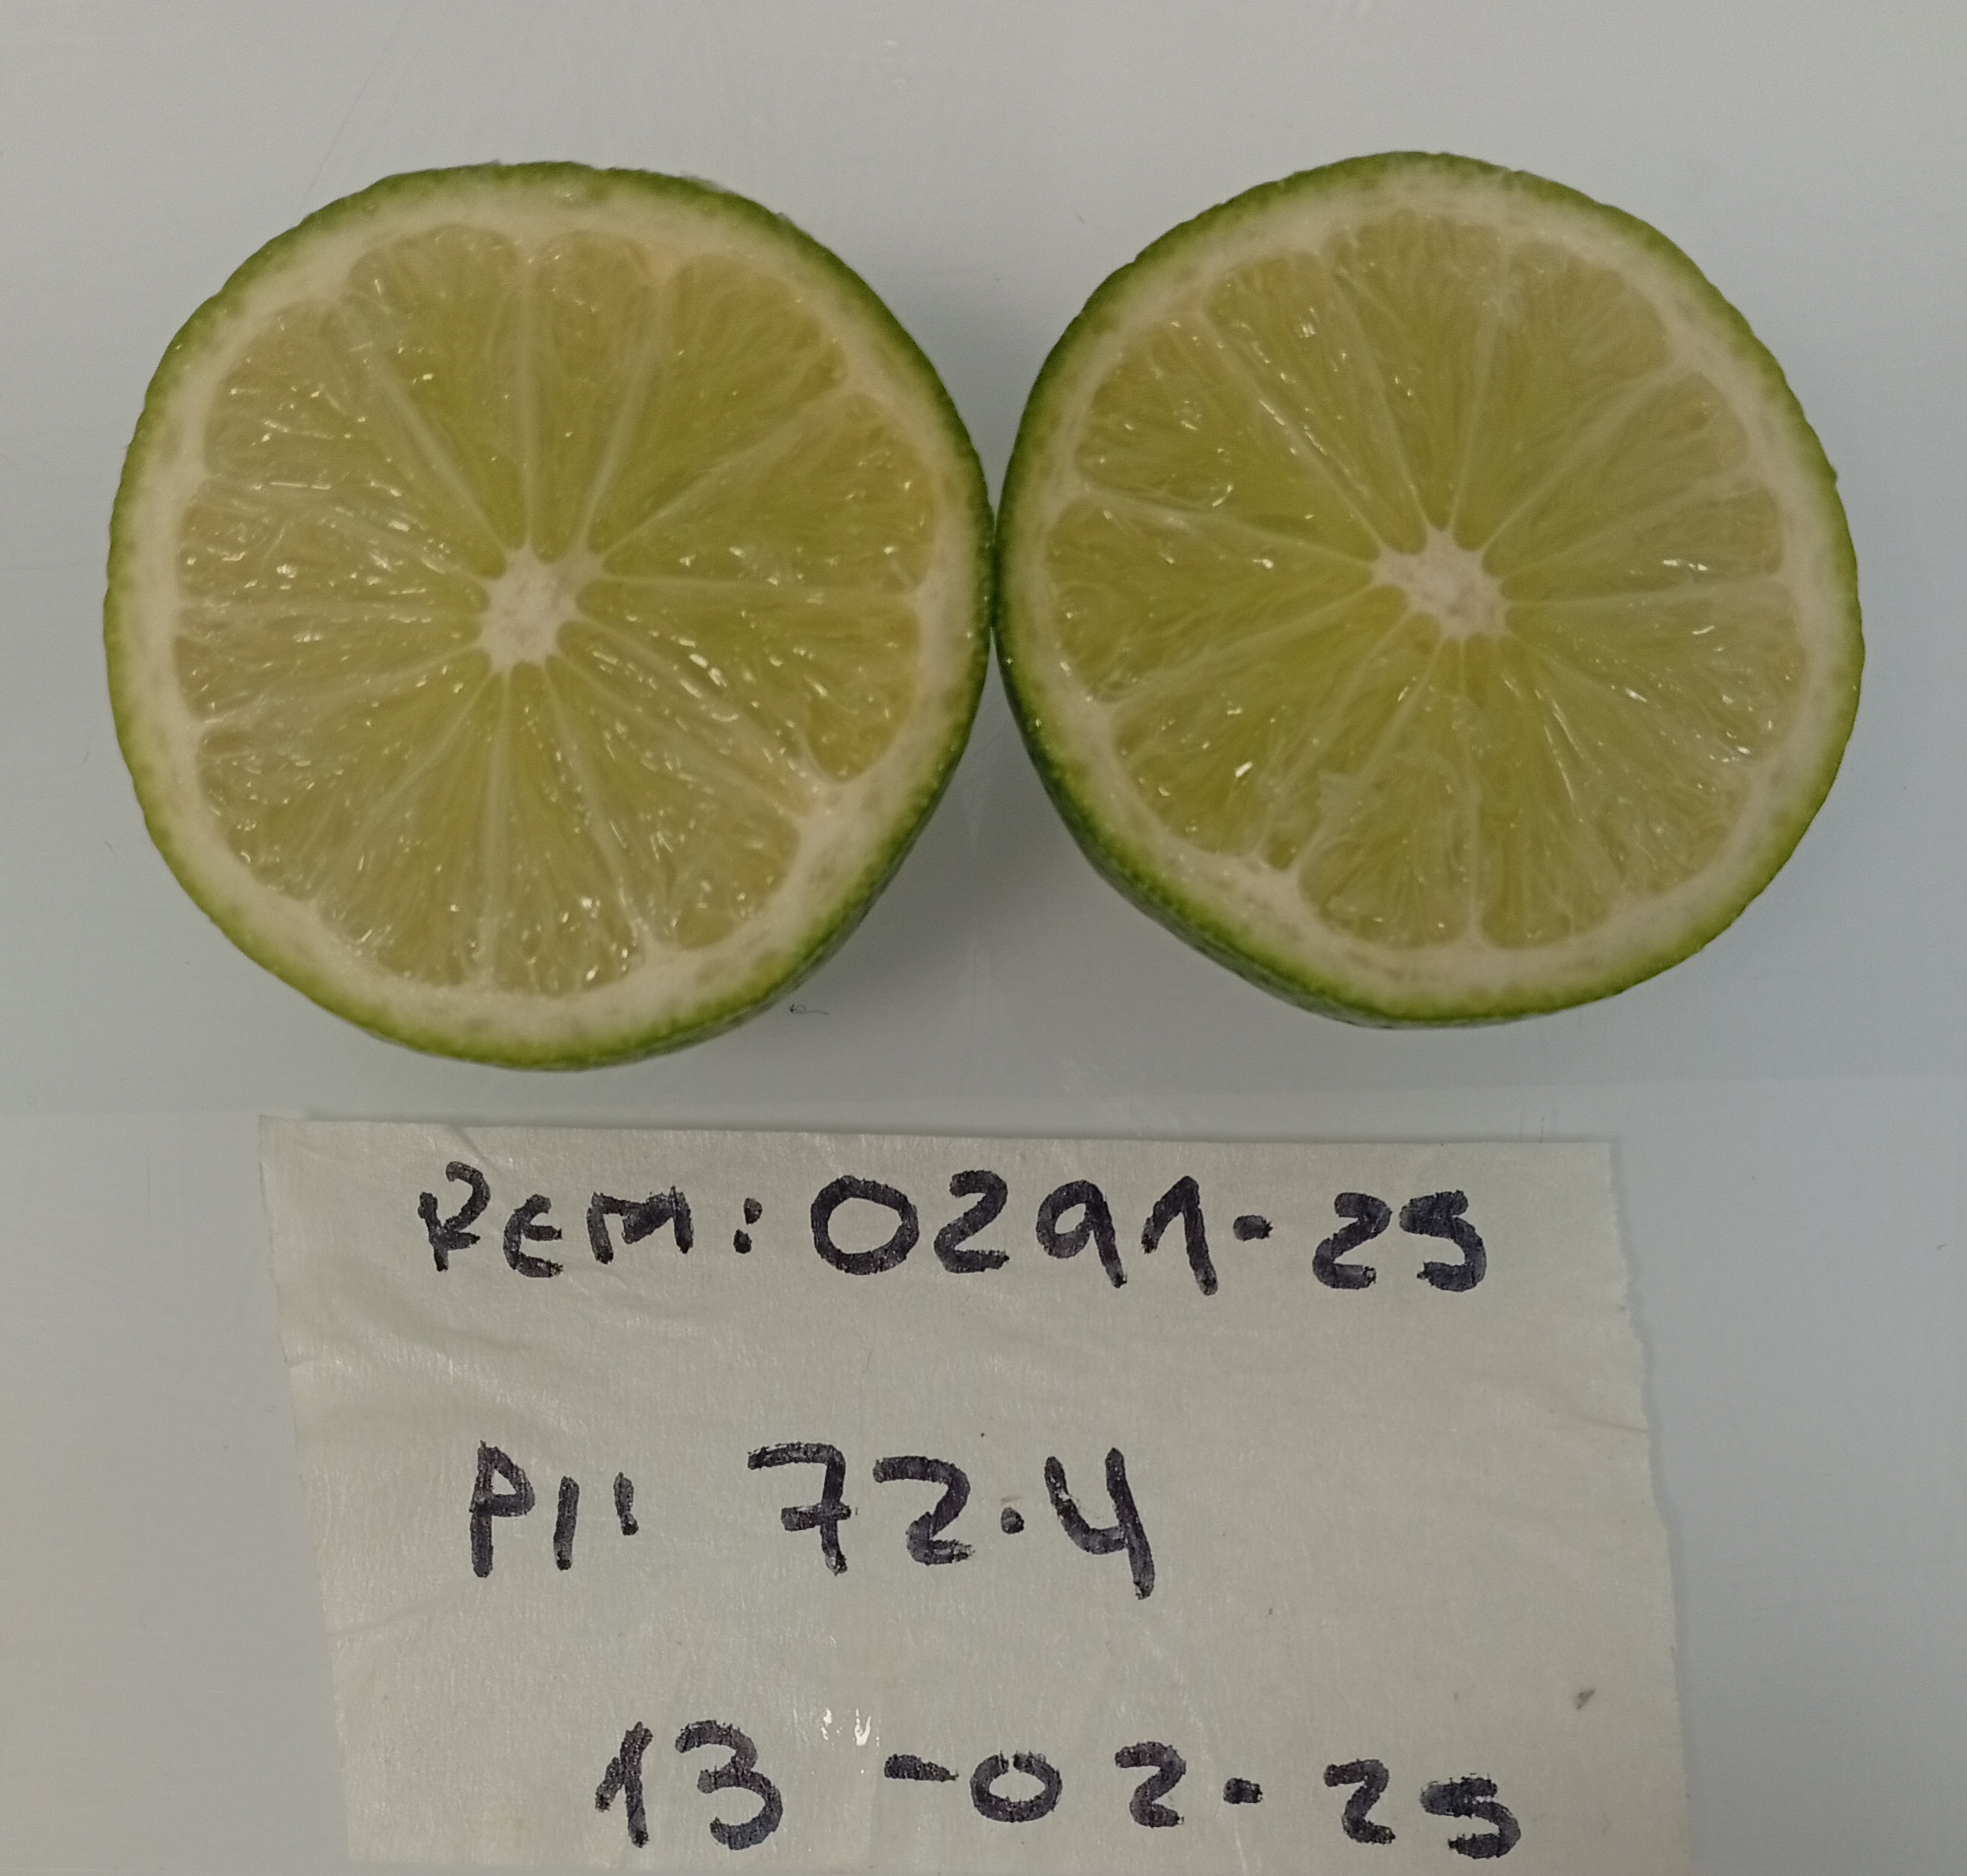 REM: 0291-25
PI: 72.4
13-02-25